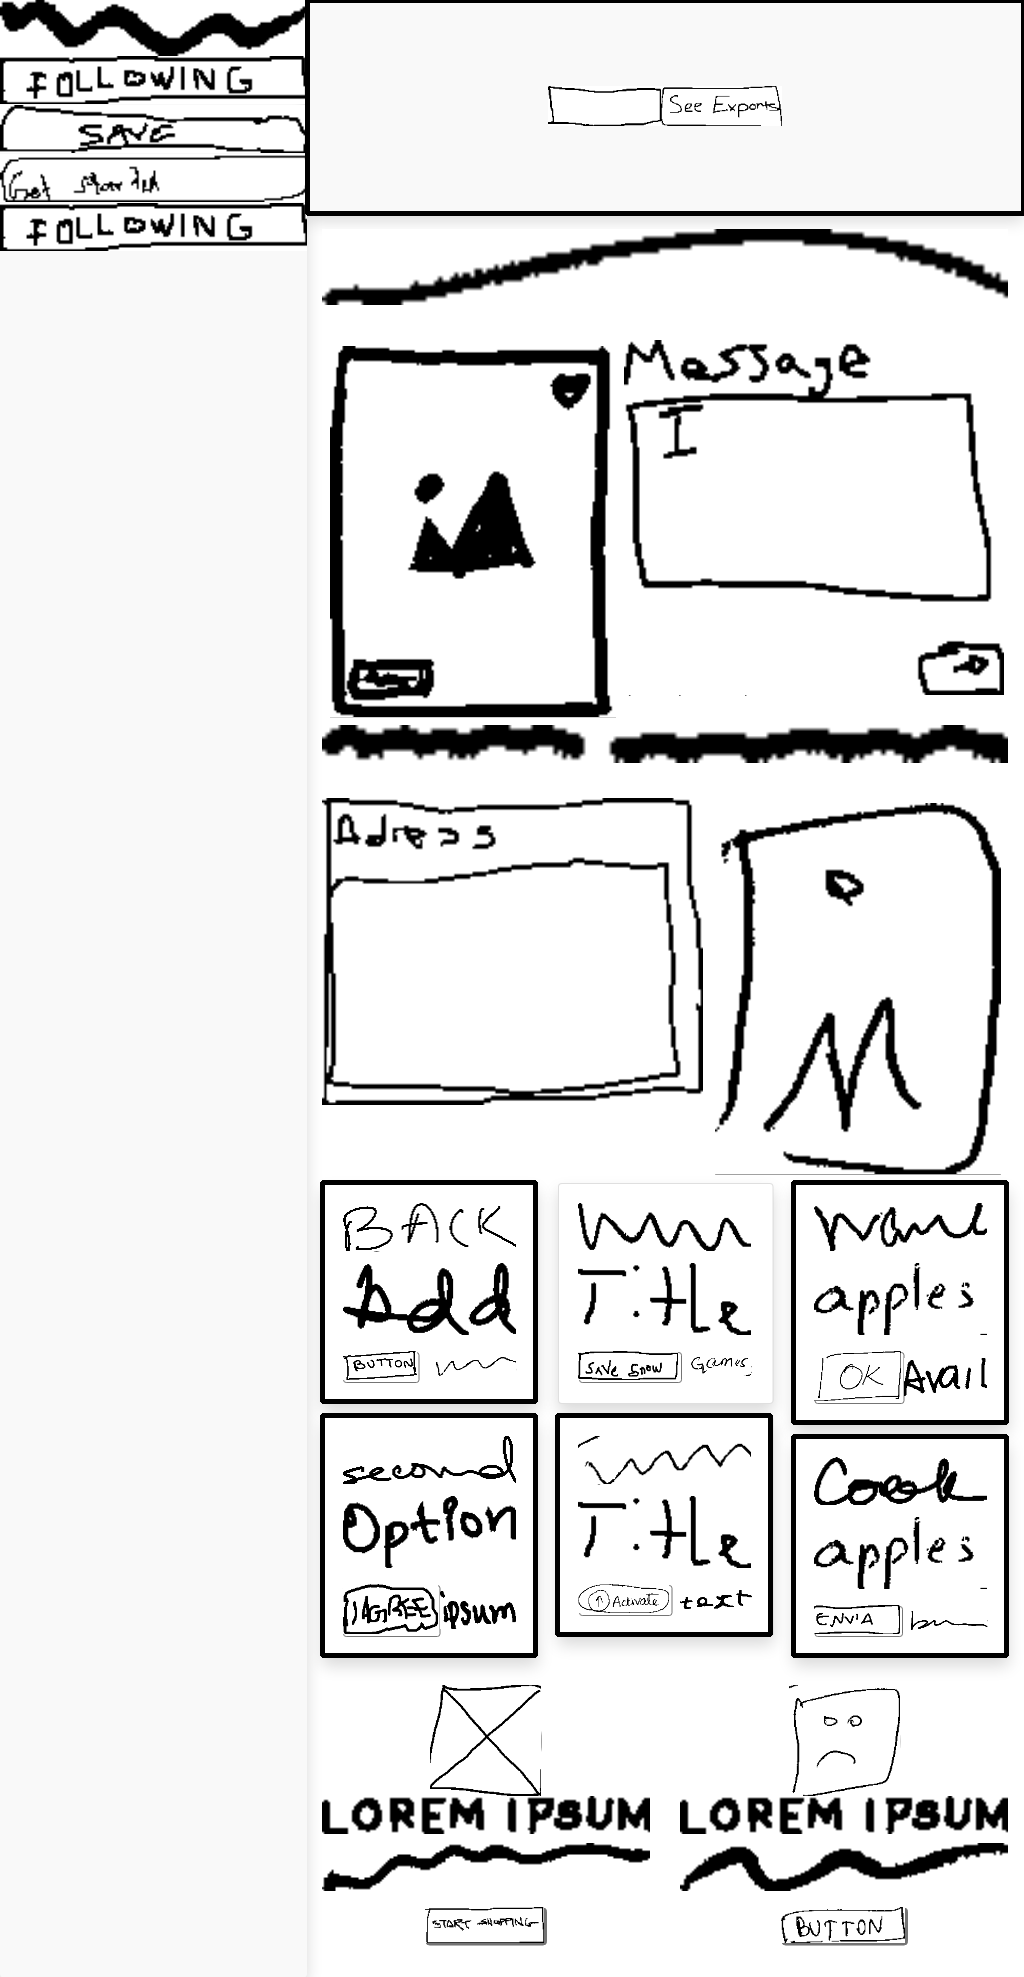 FOLLOWING
SAVE
Get Started
FOLLOWING
See Exports
Message
I
Adress
BACK
Add
BUTTON
Title
SAVE SNOW Games
Name
apples
OK Avail
second
Option
I AGREE ipsum
Title
Activate text
Cook
apples
ENVIA
LOREM IPSUM
START SHOPPING
LOREM IPSUM
BUTTON